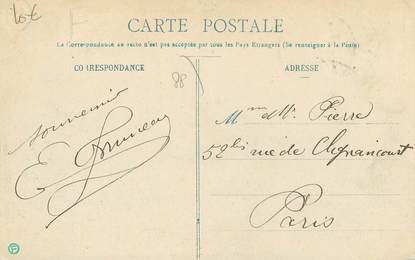 10€
CARTE POSTALE
La Correspondance au recto n'est pas acceptée par tous les Pays Etrangers (Se renseigner à la Poste)
CORRESPONDANCE
ADRESSE
88
souvenir
E.
Mme Pierre
52bis rue de Clignancourt
Paris